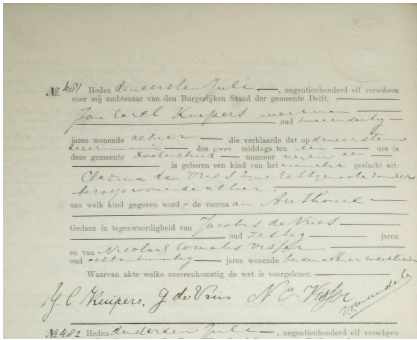 No. 481 Heden den eersten Juli, negentienhonderd elf verscheen
voor mij ambtenaar van den Burgerlijken Stand der gemeente Delft.
Jan Carel Kuipers werkman
oud
jaren wonende alhier die verklaarde dat op den eersten
dezer des middags ten ure in
deze gemeente nummer negen een
is geboren een kind van het geslacht uit:
Clasina de Vries zijne echtgenoote zonder
beroep wonende alhier
aan welk kind gegeven word de voorna Anthonie
Gedaan in tegenwoordigheid van Jacobus de Vries
oud zestig jaren
en van Nicolaas Cornelis Visser
oud jaren wonende beiden alhier
Waarvan akte welke overeenkomstig de wet is voorgelezen.
J. C. Kuipers J. de Vries N. C. Visser
No. 482 Heden den derden Juli, negentienhonderd elf verscheen